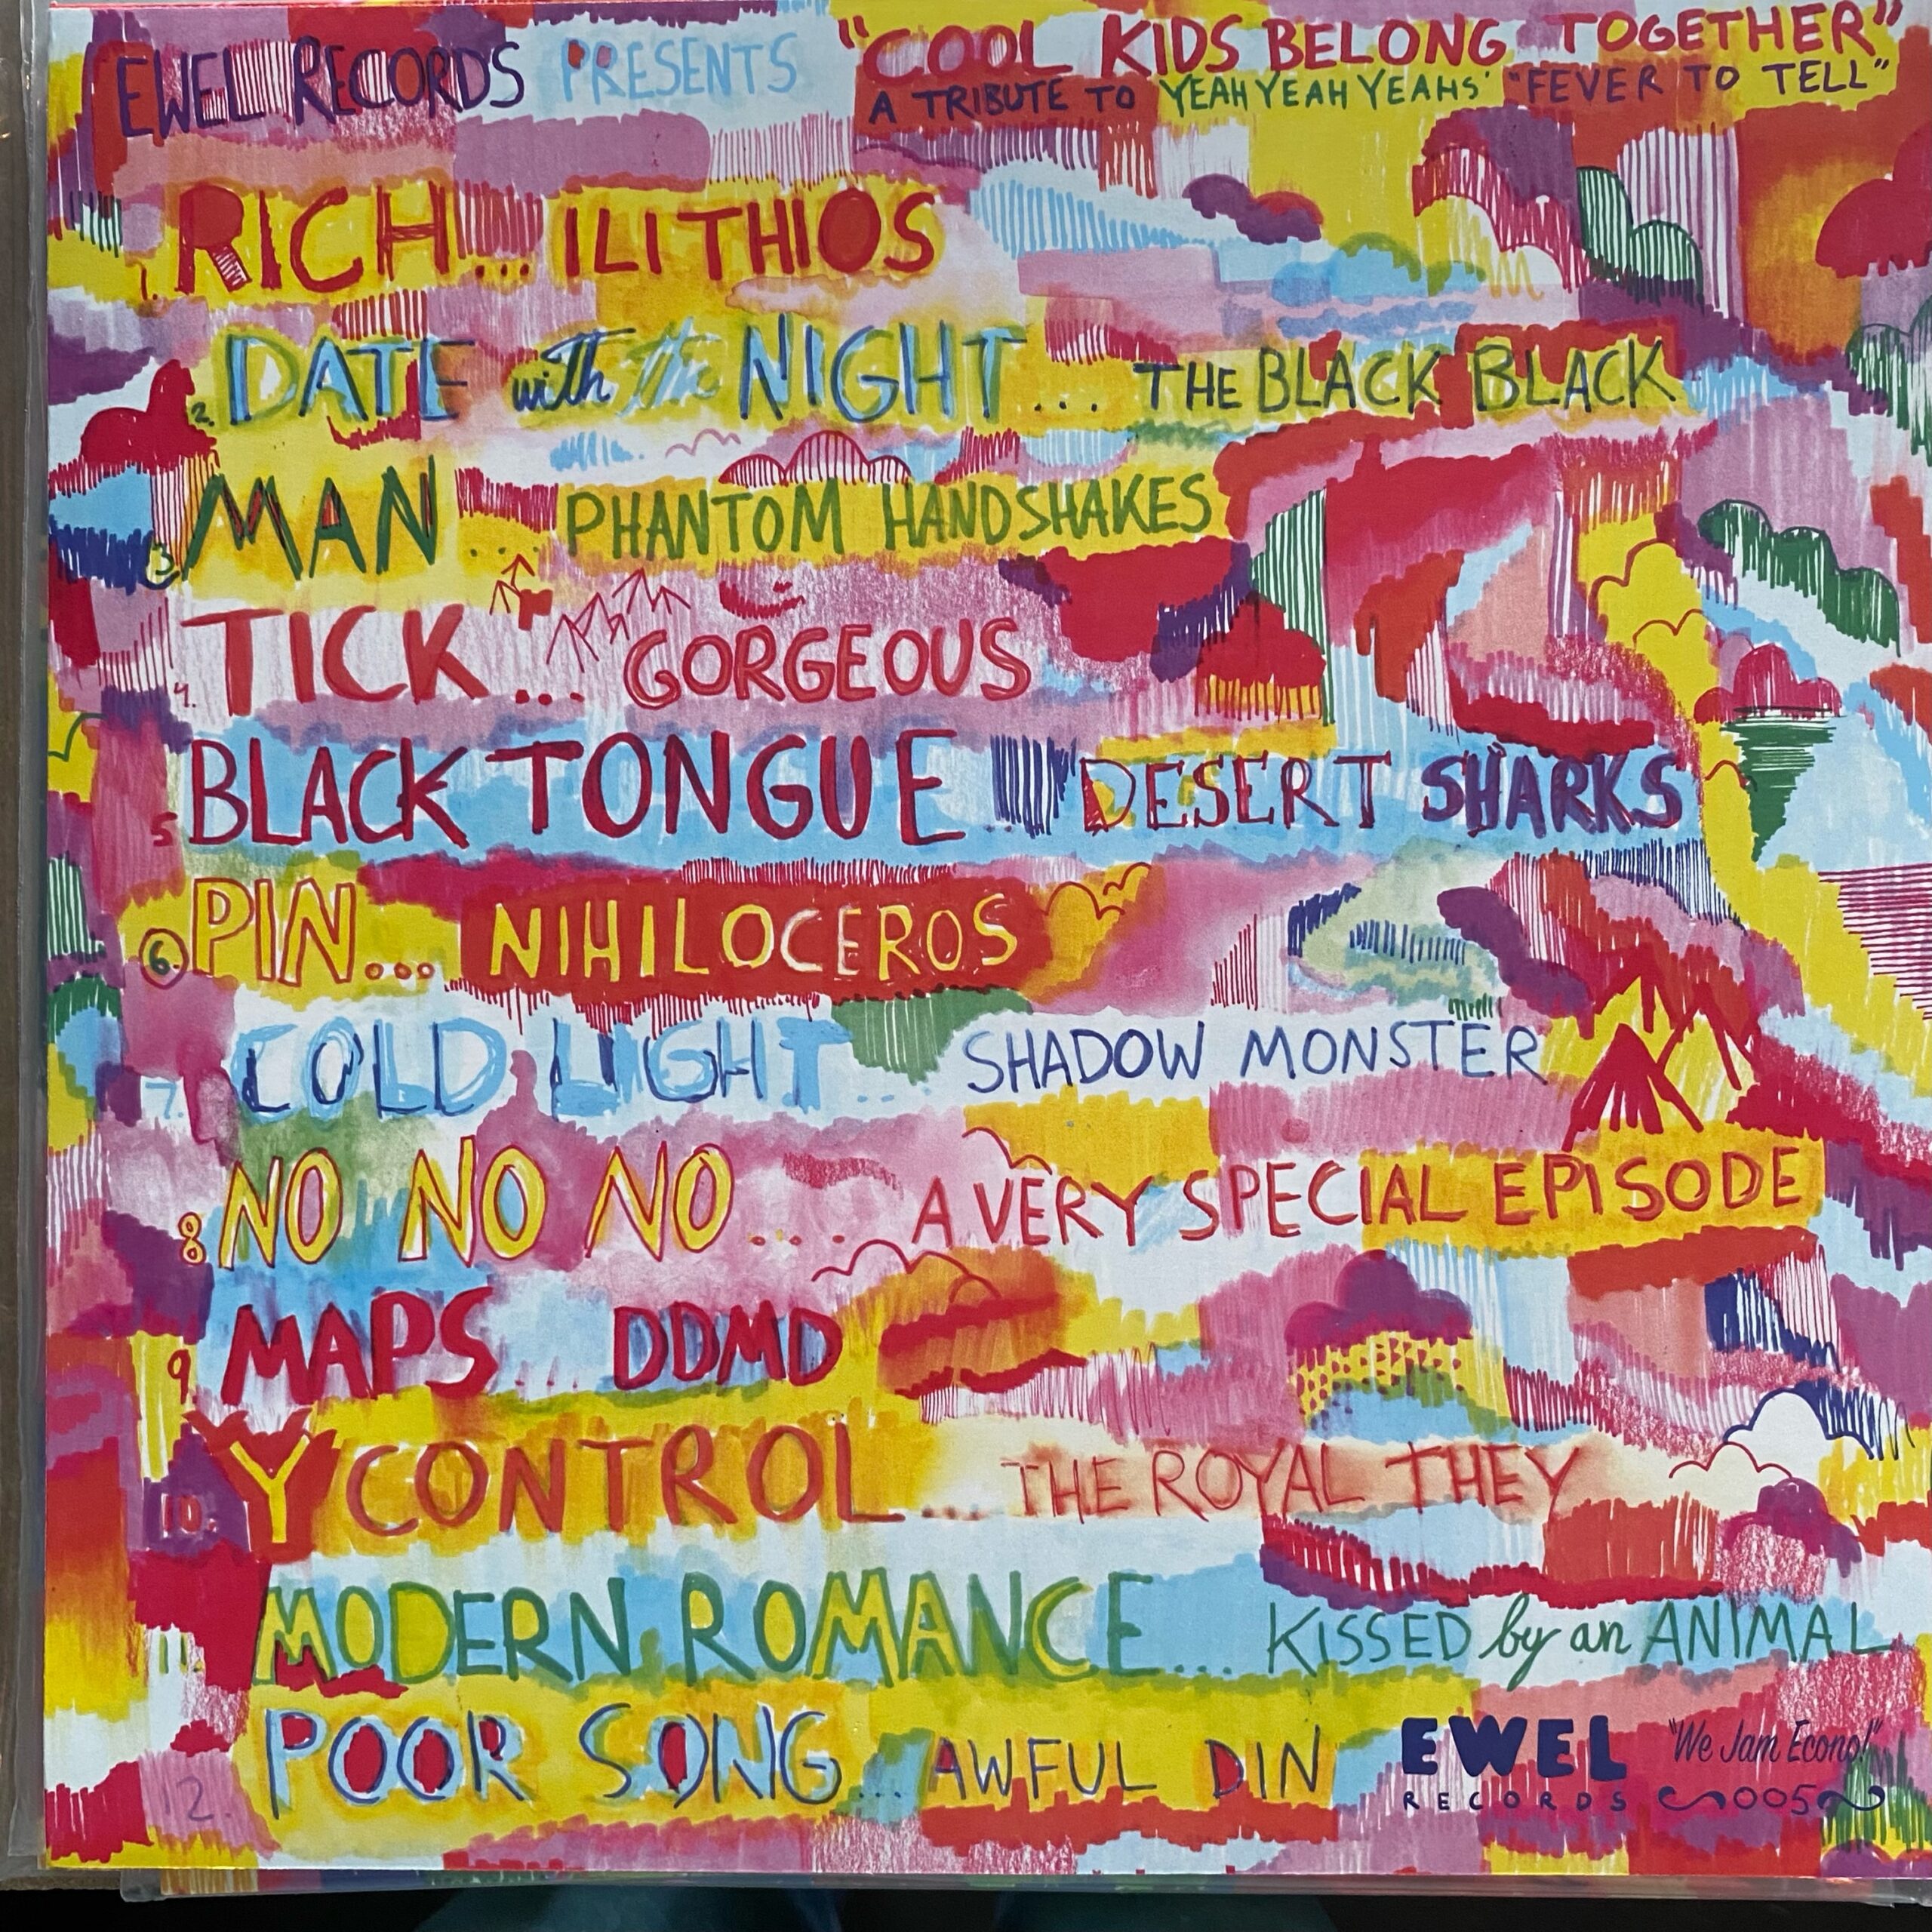 EWEL RECORDS PRESENTS "COOL KIDS BELONG TOGETHER"
A TRIBUTE TO YEAH YEAH YEAHS' "FEVER TO TELL"
1. RICH... ILITHIOS
2. DATE with the NIGHT... THE BLACK BLACK
3 MAN... PHANTOM HANDSHAKES
4. TICK... GORGEOUS
5 BLACK TONGUE... DESERT SHARKS
6. PIN... NIHILOCEROS
7. COLD LIGHT... SHADOW MONSTER
8 NO NO NO.... A VERY SPECIAL EPISODE
9. MAPS DDMD
10. Y CONTROL... THE ROYAL THEY
11. MODERN ROMANCE... KISSED by an ANIMAL
12. POOR SONG... AWFUL DIN
EWEL RECORDS
"We Jam Econo!"
005